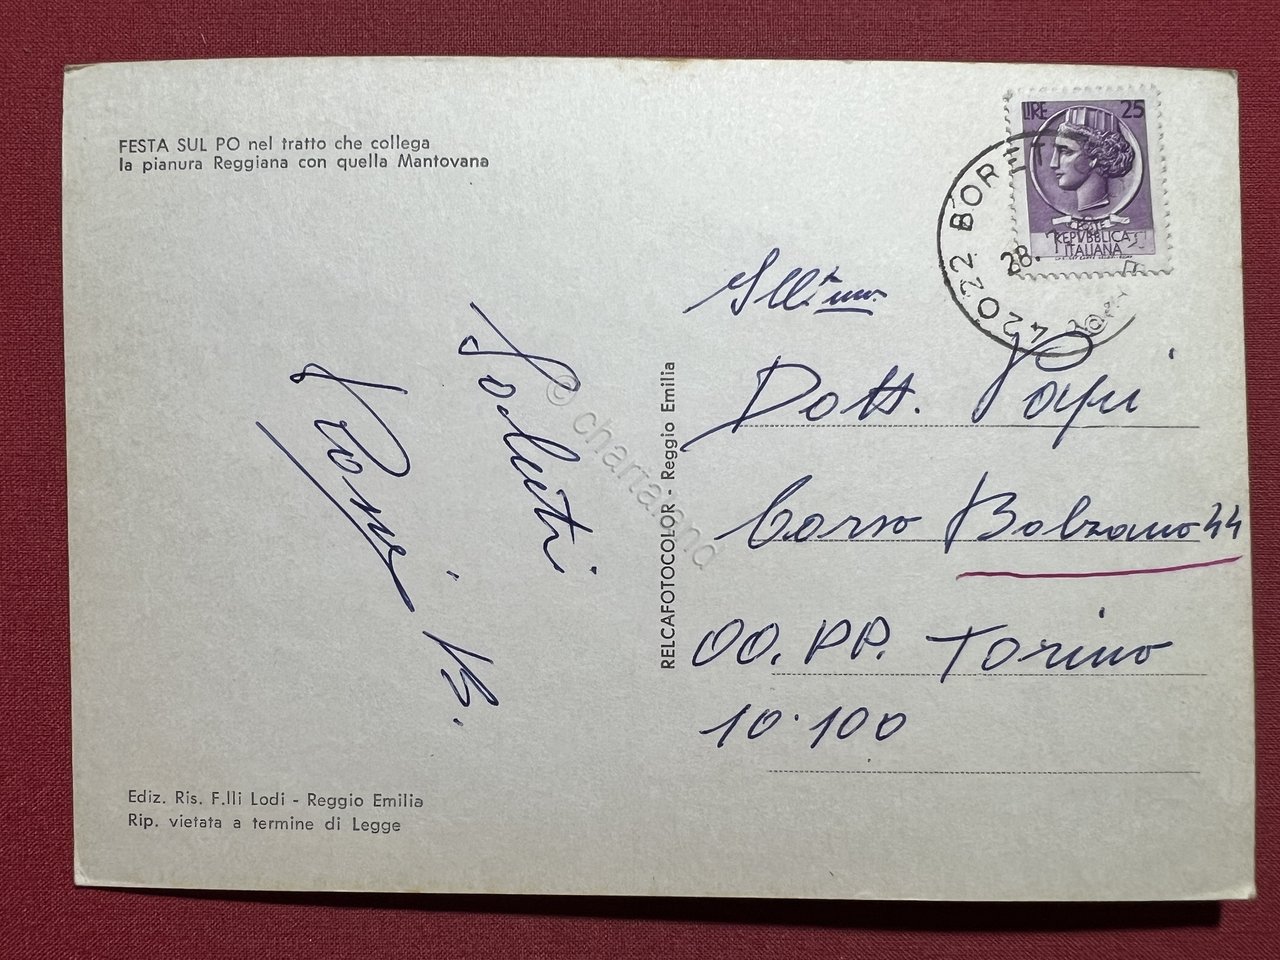 FESTA SUL PO nel tratto che collega
la pianura Reggiana con quella Mantovana
LIRE 25
POSTE
REPVBBLICA
ITALIANA
42022 BORETT
28.
Ill.mo
Dott. Papi
Corso Bolzano 44
OO. PP. Torino
10.100
Saluti
Rossi B.
RELCAFOTOCOLOR - Reggio Emilia
Ediz. Ris. F.lli Lodi - Reggio Emilia
Rip. vietata a termine di Legge
© chartaland